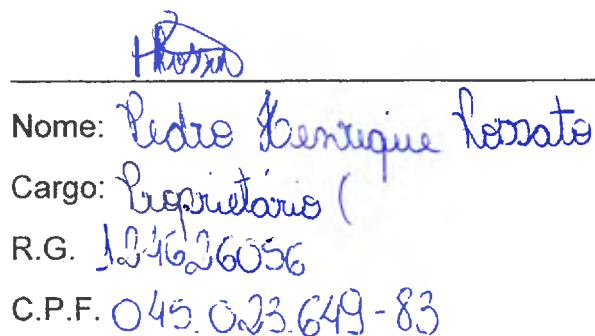 Nome: Pedro Henrique Lossato
Cargo: Proprietário (
R.G. 124626056
C.P.F. 045.023.649-83